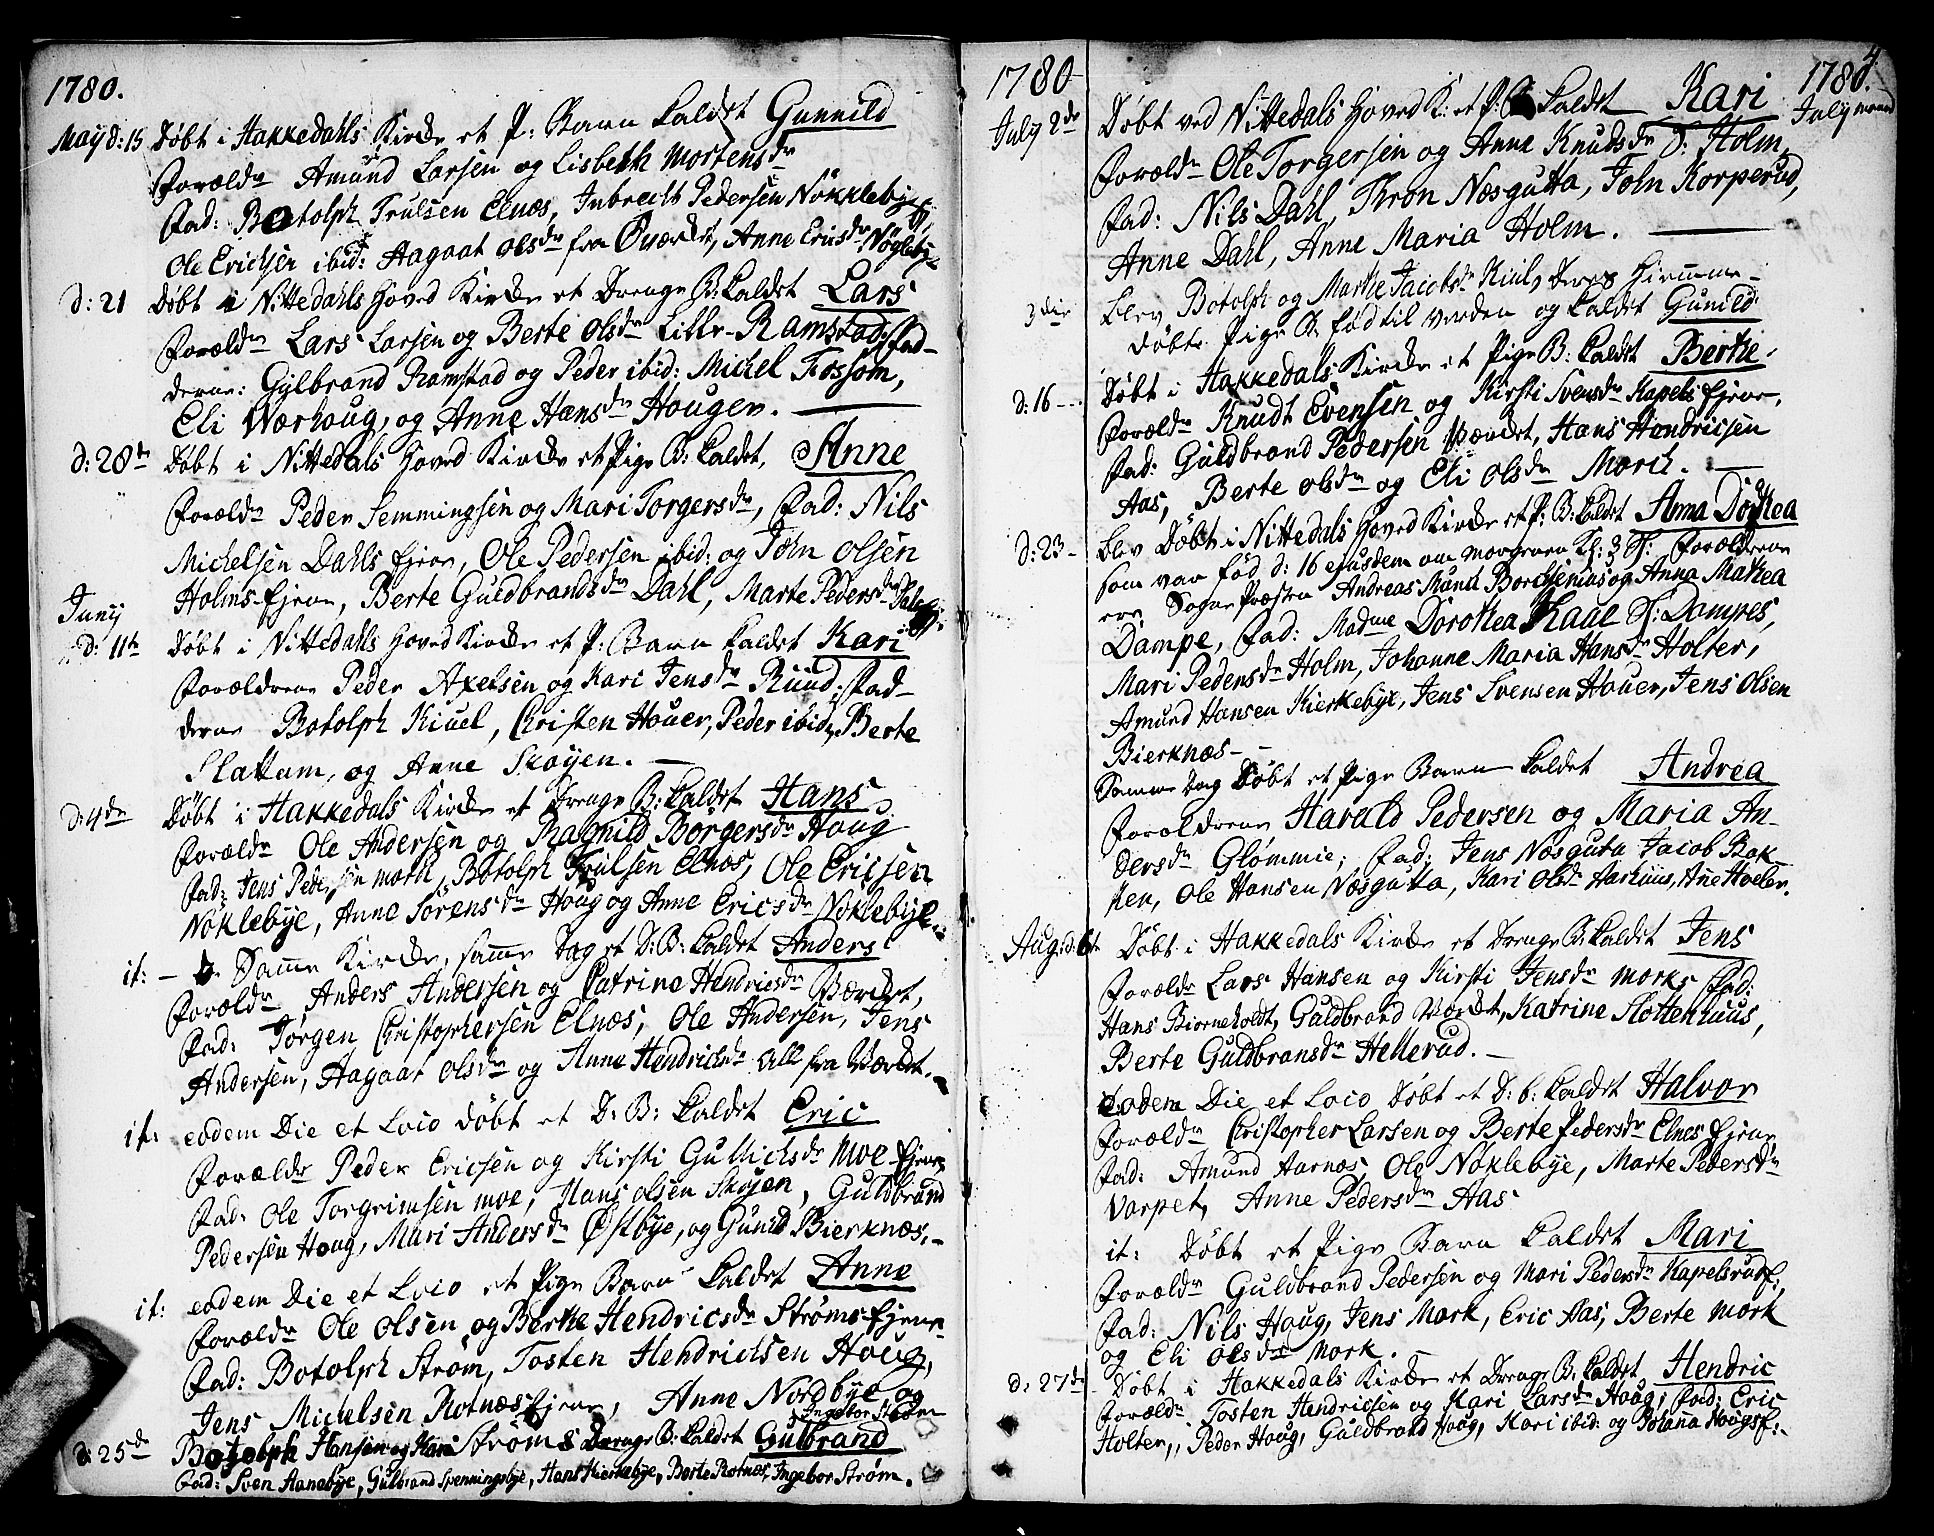 1780.
May d: 15 Döbt i Hakkedahls Kirke et P: Barn kaldet Gunnild
Foræld:r Amund Larsen og Lisbeth Mortensd:r
Fad: Botolph Trulsen Elnæs, Inbrecht Pedersen Nökklebye,
Ole Erichsen ibid: Aagaat Olsd:r fra Værket, Anne Ericsd:r Nöglebye
d: 21 Döbt i Nittedahls Hoved Kirke et Drenge B: kaldet Lars
Foræld:r Lars Larsen og Berte Olsd:r Lille-Ramstad; Fad-
derne: Gylbrand Ramstad og Peder ibid: Michel Fossom,
Eli Wærhoug, og Anne Hansd:r Hougen.
d: 28de Döbt i Nittedals Hoved Kirke et Pige B: kaldet, Anne
Foræld:r Peder Semmingsen og Mari Torgersd:r, Fad: Nils
Michelsen Dahls Ejer, Ole Pedersen ibid: og John Olsen
Holms-Ejer, Berte Guldbrandsd:r Dahl, Marte Pedersd:r
Junij
d: 11te Döbt i Nittedahls Hoved Kirke et P: Barn kaldet Kari
Forældrene Peder Axelsen og Kari Jensd:r Ruud; Fad-
derne Botolph Kiuel, Christen Houer, Peder ibid, Berte
Slattum, og Anne Skøyen.
d: 4de Döbt i Hakkedals Kirke et Drenge B: kaldet Hans
Foræld:r Ole Andersen og Ragnild Börgersd:r Houg
Fad: Jens Pedersen Mork, Botolph Trulsen Elnæs, Ole Ericsen
Nöklebye, Anne Sörensd:r Houg og Anne Ericsd:r Nöklebye
it: - Samme Kirke, samme Dag et D: B: kaldet Anders
Foræld:r Anders Andersen og Catrine Hendricsd:r Værket,
Fad: Jörgen Christophersen Elnæs, Ole Andersen, Jens
Andersen, Aagaat Olsd:r og Anne Hendrichsd:r all fra Værket.
it: eodem Die et Loco döbt et D: B: kaldet Eric
Foræld:r Peder Ericsen og Kirsti Gullichsd:r Moe-Ejer
Fad: Ole Torgrimsen Moe, Hans Olsen Skøjen, Guldbrand
Pedersen Houg, Mari Andersd:r Østbye, og Gunild Bierknæs.
it: eodem Die et Loco et Pige Barn kaldet Anne
Foræld:r Ole Olsen og Berthe Hendricsd:r Ströms-Ejer
Fad: Botolph Ström, Tosten Hendrichsen Houg,
Jens Michelsen Rotnæs Ejer, Anne Nordbye og
Ingebor Ström
d: 25de Botolph Hansen og Kari Ströms Drenge B: kaldet Gulbrand
Fad: Sven Hanebye, Gulbrand Spenningsbye, Hans Kierkebye, Berte Rotnæs, Ingebor Ström.
1780
1780. 4
July 2de Döbt ved Nittedals Hoved K: et P: B kaldet Kari July maaned
Foræld:r Ole Torgersen og Anne Knudsd:r Holm,
Fad: Nils Dahl, Thron Næsgutta, John Korperud,
Anne Dahl, Anne Maria Holm.
3die Blev Botolph og Marthe Jacobsd:r Kiuls deres hiemme-
döbte Pige B. fød til Verden og kaldet Gunild
d: 16 - Döbt i Hakkedals Kirke et Pige B: kaldet Berthe,
Foræld:r Knudt Evensen og Kirsti Svensd:r Kapels Ejer,
Fad: Guldbrand Pedersen Værket, Hans Hendricsen
Aas, Berte Olsd:r og Eli Olsd:r Morch.
d: 23 - Blev Döbt i Nittedals Hoved Kirke et P: B: kaldet Anna Dorthea
som var fød d: 16 ejusdem om Morgenen Kl: 3 Forældrene
ere Sogne Præsten Andreas Munch Borchsenius og Anna Mathea
Dampe, Fad: Madme Dorothea Kaae Sl: Dampes,
Mari Pedersd:r Holm, Johanne Maria Hansd:r Holter,
Amund Hansen Kierkebye, Jens Svensen Houer, Jens Olsen
Bierknæs -
Samme Dag Döbt et Pige Barn kaldet Andrea
Forældrene Harald Pedersen og Maria An-
dersd:r Glömmie; Fad: Jens Næsguta Jacob Bak-
ken, Ole Hansen Næsgutta, Kari Olsd:r Aarhuus, Ane Hoeler.
Aug: d: 6t Döbt i Hakkedals Kirke et Drenge B: kaldet Jens
Foræld:r Lars Hansen og Kirsti Jensd:r Mork; Fad:
Hans Biorneholdt, Guldbrand Værket, Katrine Slottenhuus,
Berte Guldbransd:r Hellerud.
Eodem Die et Loco Döbt et D: b: kaldet Halvor
Foræld:r Christopher Larsen og Berte Pedersd:r Elnes Ejer
Fad: Amund Aarnæs, Ole Nöklebye, Marte Pedersd:r
Varpet, Anne Pedersd:r Aas
it: Döbt et Pige Barn kaldet Mari
Foræld:r Guldbrand Pedersen og Mari Pedersd:r Kapelsrud
Fad: Nils Houg, Jens Mork, Eric Aas, Berte Mork
og Eli Olsd:r Mork.
d: 27de Döbt i Hakkedals Kirke et Drenge B: kaldet Hendric
Foræld:r Tosten Hendricsen og Kari Larsd:r Houg; Fad: Eric
Holter, Peder Houg, Guldbrand Houg, Kari ibid: og Johanna Hougsf: